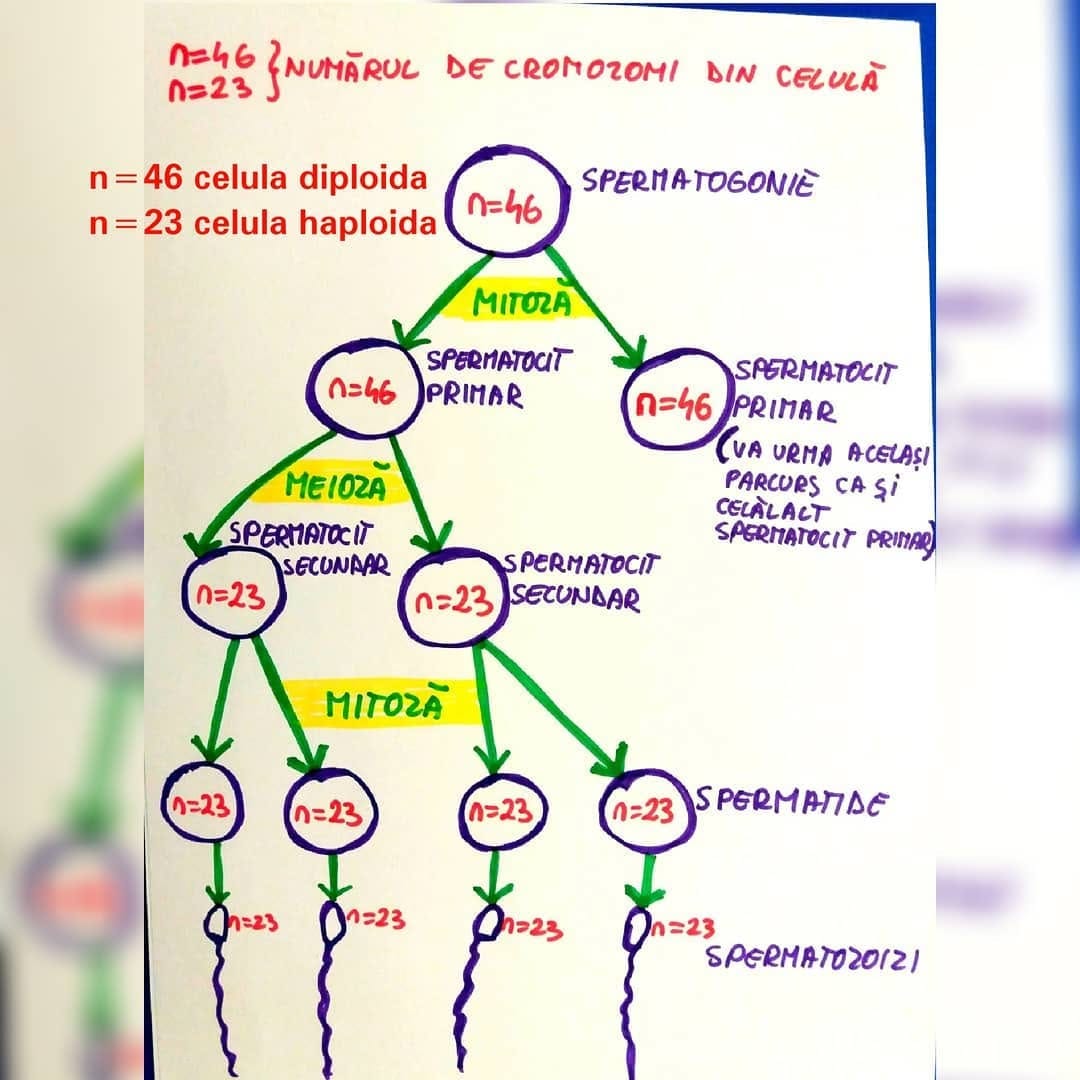 n=46
n=23
} NUMĂRUL DE CROMOZOMI DIN CELULĂ
n=46 celula diploida
n=23 celula haploida
n=46
SPERMATOGONIE
MITOZĂ
n=46
SPERMATOCIT
PRIMAR
n=46
SPERMATOCIT
PRIMAR
(VA URMA ACELAȘI
PARCURS CA ȘI
CELĂLALT
SPERMATOCIT PRIMAR)
MEIOZĂ
SPERMATOCIT
SECUNDAR
n=23
SPERMATOCIT
SECUNDAR
n=23
MITOZĂ
n=23
n=23
n=23
n=23
SPERMATIDE
n=23
n=23
n=23
n=23
SPERMATOZOIZI